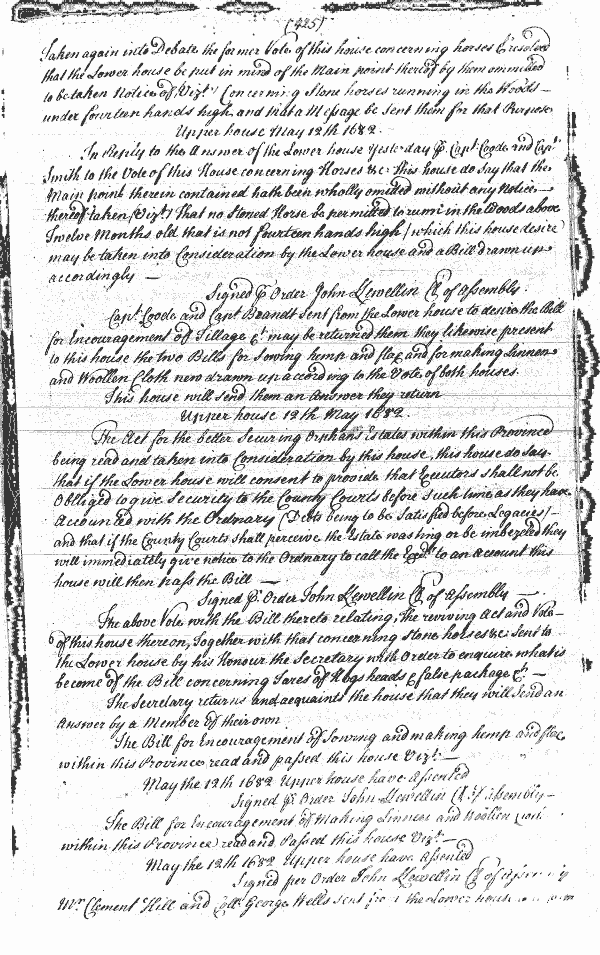 (425)
Taken again into Debate the former Vote of this house concerning horses & resolved
that the Lower house be put in mind of the Main point thereof by them ommitted
to be taken Notice of Vizt. Concerning Stone horses running in the Woods
under fourteen hands high, and that a Message be sent them for that Purpose
Upper house May 12th 1682.
In Reply to the Answer of the Lower house Yesterday p Capt. Coode and Capt.
Smith to the Vote of this House concerning Horses &c this house do Say that the
Main point therein contained hath been wholly omitted without any Notice
thereof taken (Vizt.) That no Stoned Horse be permitted to runn in the Woods above
Twelve Months old that is not fourteen hands high / which this house desire
may be taken into Consideration by the Lower house and a Bill drawn up
accordingly —
Signed p Order John Llewellin Cl. of Assembly.
Capt. Coode and Capt. Brandt sent from the Lower house to desire the Bill
for Encouragement of Tillage &c. may be returned them they likewise present
to this house the two Bills for Sowing hemp and flex and for making Linnen
and Woollen Cloth new drawn up according to the Vote of both houses.
This house will send them an Answer they return
Upper house 12th May 1682.
The Act for the better Securing Orphans Estates within this Province
being read and taken into Consideration by this house, this house do Say
that if the Lower house will consent to provide that Executors shall not be
Obliged to give Security to the County Courts before Such time as they have
Accounted with the Ordnary (Debts being to be Satisfied before Legacies) —
and that if the County Courts shall perceive the Estate wasting or be imbezled they
will immediately give notice to the Ordnary to call the Exrs. to an Account this
house will then pass the Bill —
Signed p Order John Llewellin Cl. of Assembly —
The above Vote with the Bill thereto relating, The reviving Act and Vote
of this house thereon, Together with that concerning Stone horses &c Sent to
the Lower house by his Honour the Secretary with Order to enquire what is
become of the Bill concerning Tares of Hogsheads & false package &c. —
The Secretary returns and acquaints the house that they will Send an
Answer by a Member of their own
The Bill for Encouragement of Sowing and making hemp and flex
within this Province read and passed this house Vizt. —
May the 12th 1682 Upper house have Assented
Signed p Order John Llewellin Cl. of Assembly —
The Bill for Encouragement of Making Linnen and Woollen Cloth
within this Province read and Passed this house Vizt. —
May the 12th 1682 Upper house have Assented
Signed per Order John Llewellin Cl. of Assembly
Mr. Clement Hill and Coll. George Wells sent from the Lower house